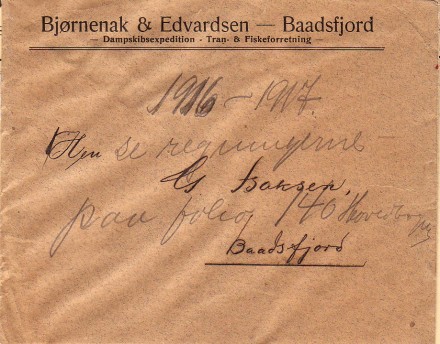 Bjørnenak & Edvardsen — Baadsfjord
— Dampskibsexpedition - Tran- & Fiskeforretning —
1916 - 1917.
se regningerne
G Isaksen,
paa folio 140 Hovedbog
Baadsfjord